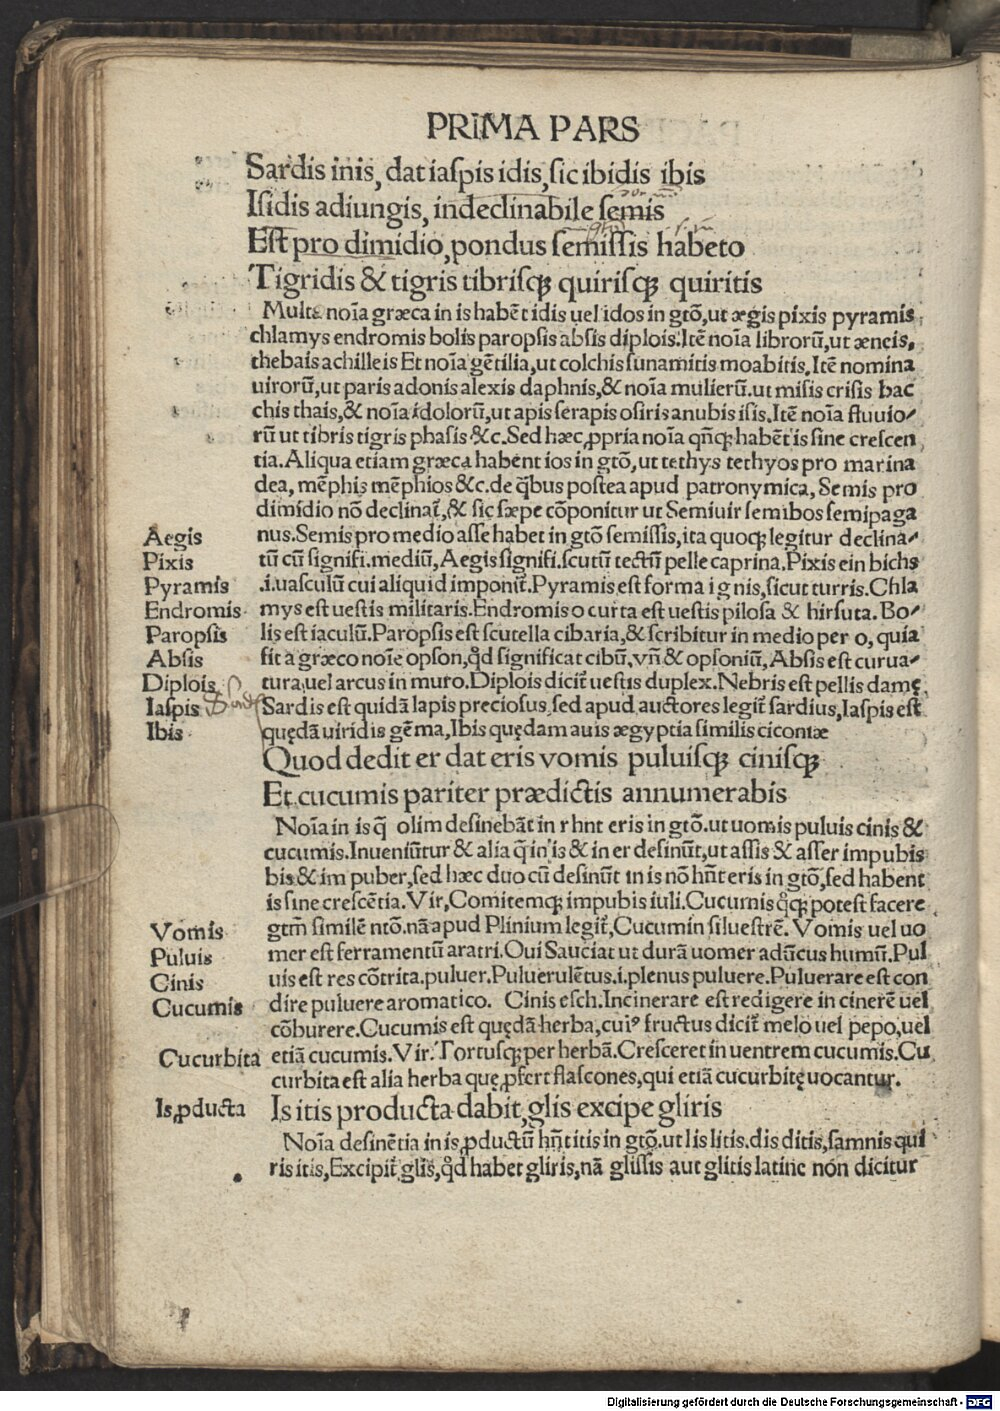 PRIMA PARS
Sardis inis, dat iaſpis idis, ſic ibidis ibis
Iſidis adiungis, indeclinabile ſemis
Eſt pro dimidio, pondus ſemiſſis habeto
Tigridis & tigris tibriſqꝫ quiriſqꝫ quiritis
Multa noīa græca in is habēt idis uel idos in gtō, ut ægis pixis pyramis
chlamys endromis bolis paropſis abſis diplois. Itē noīa librorū, ut æneis,
thebais achilleis Et noīa gētilia, ut colchis ſunamitis moabitis. Itē nomina
uirorū, ut paris adonis alexis daphnis, & noīa mulierū. ut miſis criſis bac
chis thais, & noīa idolorū, ut apis ſerapis oſiris anubis iſis. Itē noīa fluuio⸗
rū ut tibris tigris phaſis &c. Sed hæc ꝓpria noīa qn̄qꝫ habēt is ſine creſcen
tia. Aliqua etiam græca habent ios in gtō, ut tethys tethyos pro marina
dea, mēphis mēphios &c. de q̄bus poſtea apud patronymica, Semis pro
dimidio nō declinat̄, & ſic ſæpe cōponitur ut Semiuir ſemibos ſemipaga
Aegis nus. Semis pro medio aſſe habet in gtō ſemiſſis, ita quoqꝫ legitur declina⸗
Pixis tū cū ſignifi. mediū, Aegis ſignifi. ſcutū tectū pelle caprina. Pixis ein bichs
Pyramis .i. uaſculū cui aliquid imponit̄. Pyramis eſt forma ignis, ſicut turris. Chla
Endromis mys eſt ueſtis militaris. Endromis o curta eſt ueſtis piloſa & hirſuta. Bo⸗
Paropſis lis eſt iaculū. Paropſis eſt ſcutella cibaria, & ſcribitur in medio per o, quia
Abſis fit a græco noīe opſon, qd̄ ſignificat cibū, vn̄ & opſoniū, Abſis eſt curua⸗
Diplois tura uel arcus in muro. Diplois dicit̄ ueſtis duplex. Nebris eſt pellis damę
Iaſpis Sardis eſt quidā lapis precioſus, ſed apud auctores legit̄ ſardius, Iaſpis eſt
Ibis quędā uiridis gēma, Ibis quędam auis ægyptia ſimilis ciconiæ
Quod dedit er dat eris vomis puluiſqꝫ ciniſqꝫ
Et cucumis pariter prædictis annumerabis
Noīa in is q̄ olim deſinebāt in r hnt eris in gtō. ut uomis puluis cinis &
cucumis. Inueniūtur & alia q̄ in is & in er deſinūt, ut aſſis & aſſer impubis
bis & impuber, ſed hæc duo cū deſinūt in is nō hn̄t eris in gtō, ſed habent
is ſine creſcētia. Vir, Comitemqꝫ impubis iuli. Cucumis qn̄qꝫ poteſt facere
gtm̄ ſimilē ntō. nā apud Plinium legit̄, Cucumin ſilueſtrē. Vomis uel uo
Vomis mer eſt ferramentū aratri. Oui Sauciat ut durā uomer adūcus humū. Pul
Puluis uis eſt res cōtrita. puluer. Puluerulētus .i. plenus puluere. Puluerare eſt con
Cinis dire puluere aromatico. Cinis eſch. Incinerare eſt redigere in cinerē uel
Cucumis cōburere. Cucumis eſt quędā herba, cuiꝰ fructus dicit̄ melo uel pepo, uel
Cucurbita etiā cucumis. Vir. Tortuſqꝫ per herbā. Creſceret in uentrem cucumis. Cu
curbita eſt alia herba quę ꝓfert flaſcones, qui etiā cucurbitę uocantur.
Is ꝓducta Is itis producta dabit, glis excipe gliris
Noīa deſinētia in is ꝓductū hn̄t itis in gtō. ut lis litis. dis ditis, ſamnis qui
ris itis, Excipit̄ glis, qd̄ habet gliris, nā gliſſis aut glitis latine non dicitur
Digitalisierung gefördert durch die Deutsche Forschungsgemeinschaft - DFG